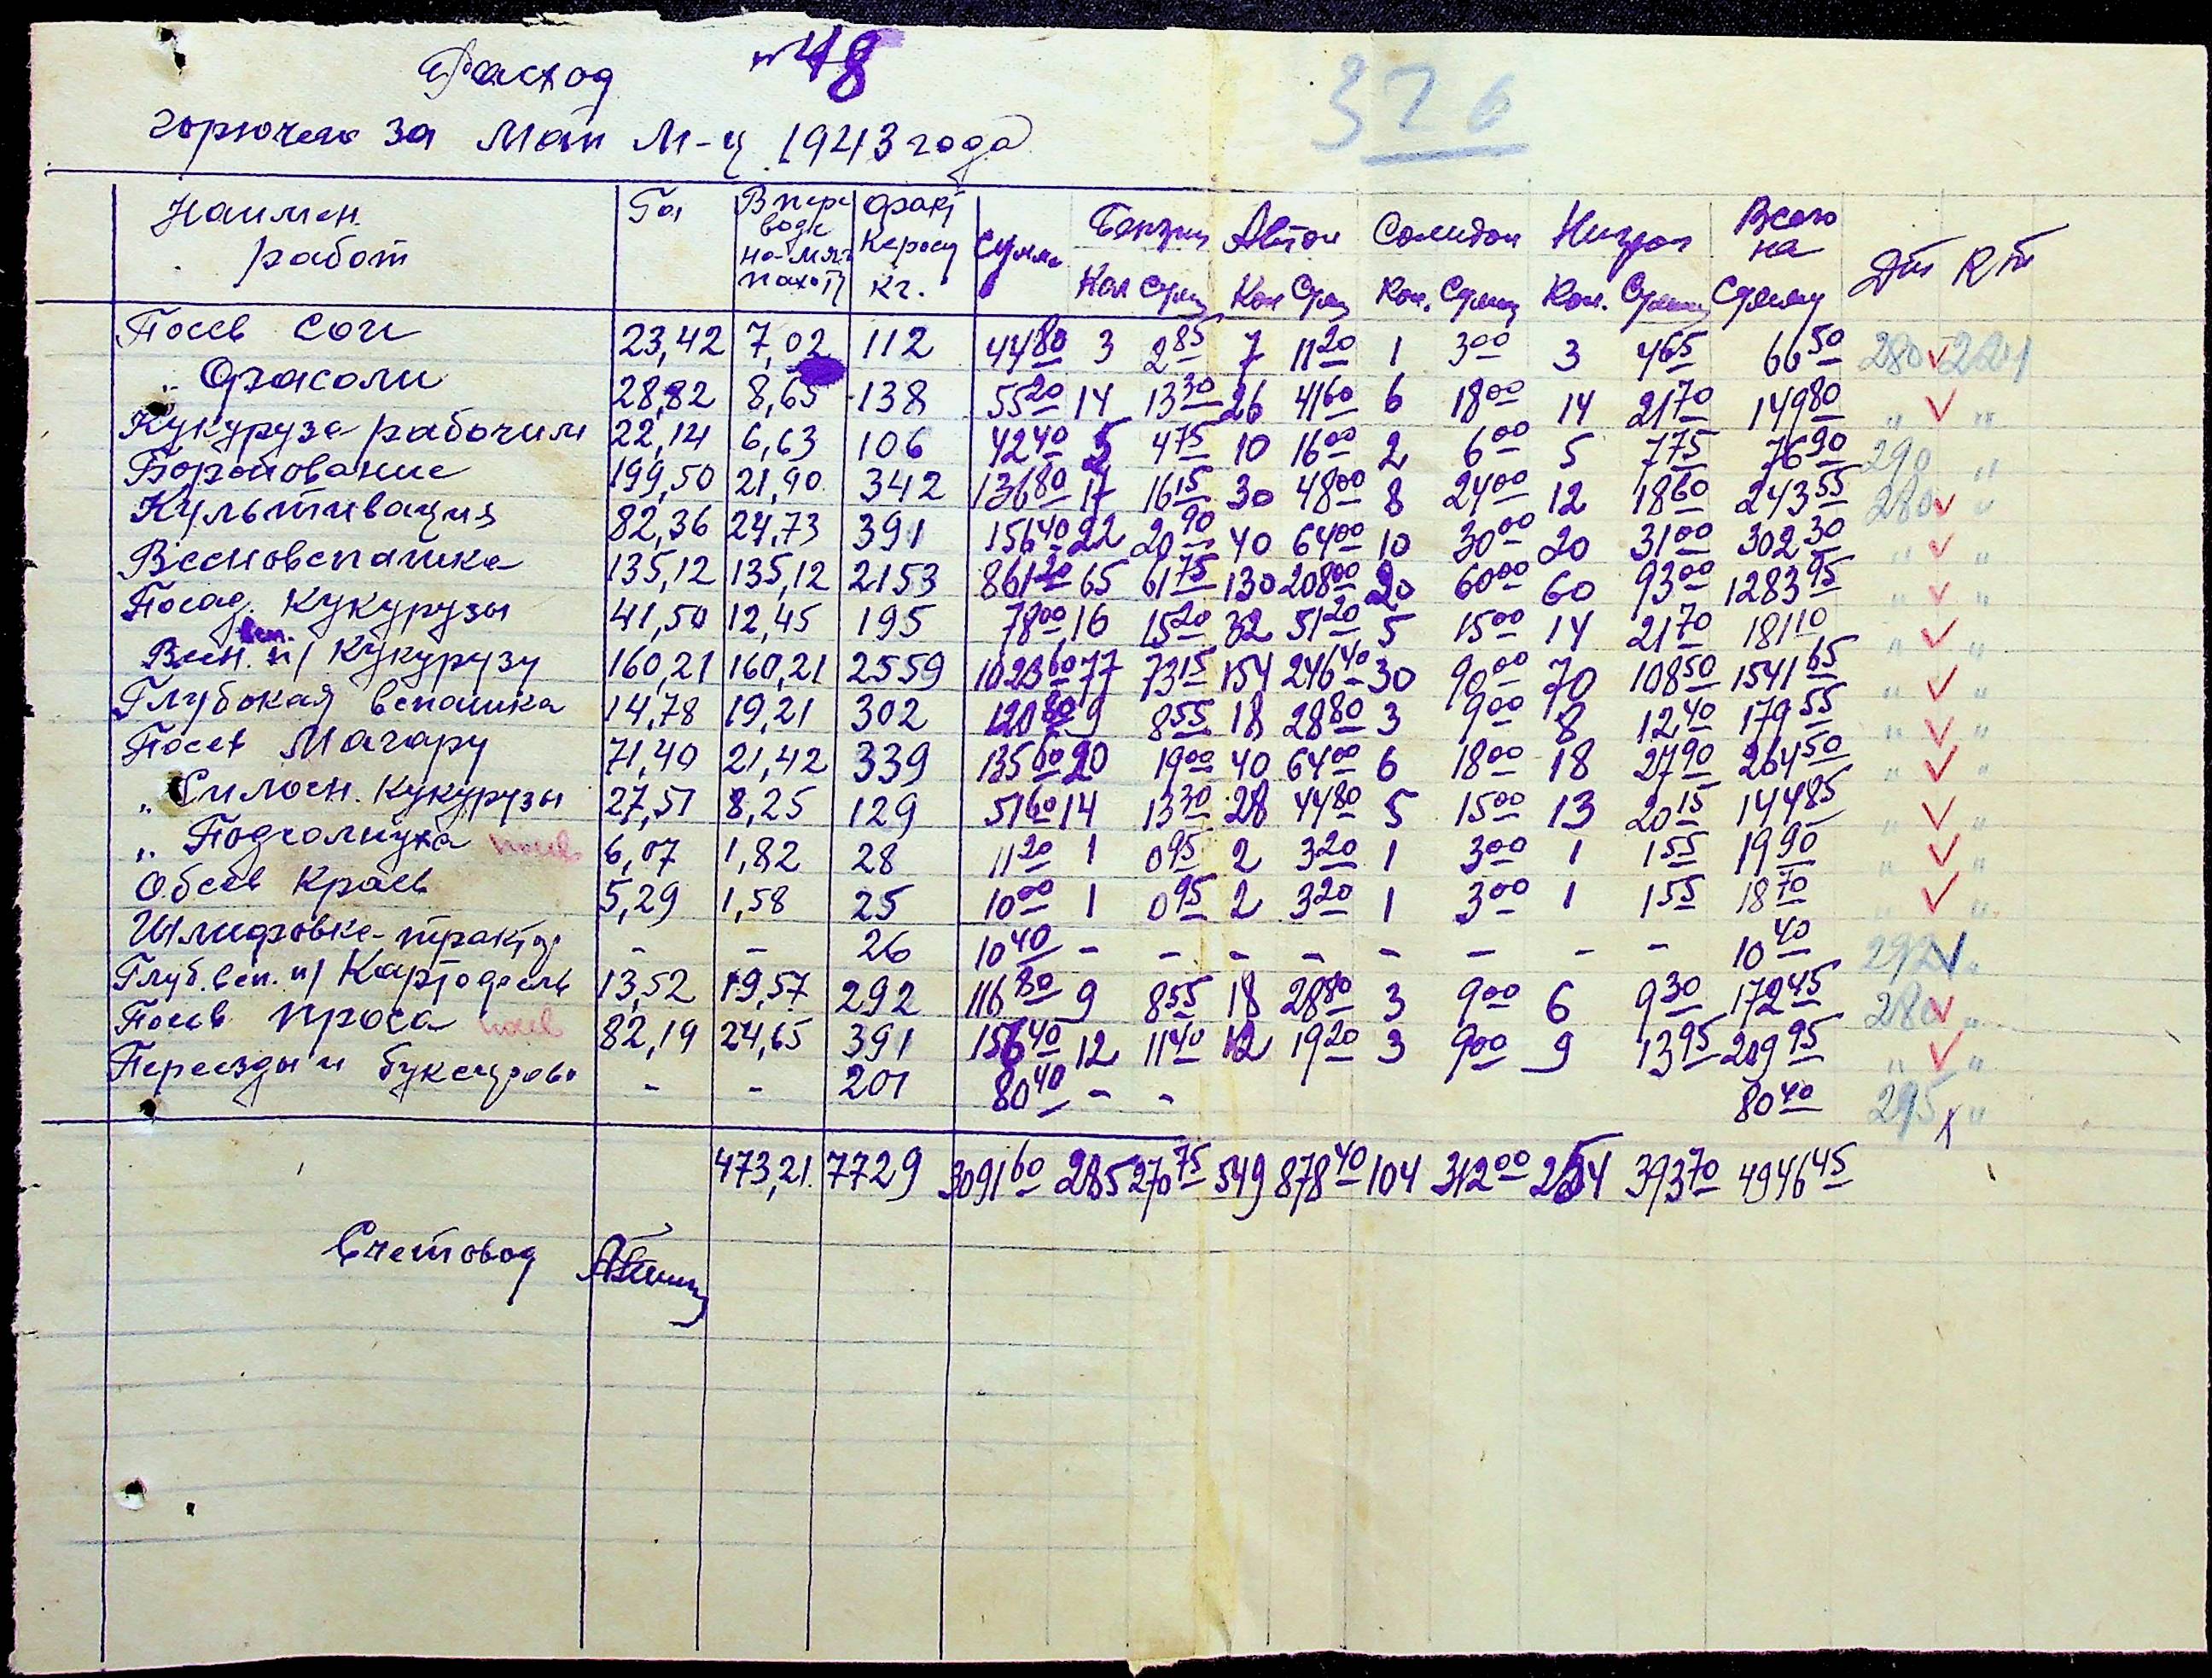 Расход №48
326
горючего за Май М-ц 1943 года
Наимен. работ Га Впере водк на мяг. пахоту факт Керосин кг. Сумма Бензин Кол Сумм Автол Кол Сумм Солидол Кол. Сумм Нигрол Кол. Сумм Всего на Сумму Дт Кт
Посев Сои 23,42 7,02 112 44 80 3 2 85 7 11 20 1 3 00 3 4 65 66 50 280 221
" Фасоли 28,82 8,65 138 55 20 14 13 30 26 41 60 6 18 00 14 21 70 149 80 " "
Кукуруза рабочим 22,14 6,63 106 42 40 5 4 75 10 16 00 2 6 00 5 7 75 76 90 290 "
Боронование 199,50 21,90 342 136 80 17 16 15 30 48 00 8 24 00 12 18 60 243 55 280 "
Культивация 82,36 24,73 391 156 40 22 20 90 40 64 00 10 30 00 20 31 00 302 30 " "
Весновспашка 135,12 135,12 2153 861 20 65 61 75 130 208 00 20 60 00 60 93 00 1283 95 " "
Посад. Кукурузы 41,50 12,45 195 78 00 16 15 20 32 51 20 5 15 00 14 21 70 181 10 " "
Весн. всп. п/ Кукурузу 160,21 160,21 2559 1023 60 77 73 15 154 246 40 30 90 00 70 108 50 1541 65 " "
Глубокая вспашка 14,78 19,21 302 120 80 9 8 55 18 28 80 3 9 00 8 12 40 179 55 " "
Посев Магару 71,40 21,42 339 135 60 20 19 00 40 64 00 6 18 00 18 27 90 264 50 " "
" Силосн. Кукурузы 27,51 8,25 129 51 60 14 13 30 28 44 80 5 15 00 13 20 15 144 85 " "
" Подсолнуха посев 6,07 1,82 28 11 20 1 0 95 2 3 20 1 3 00 1 1 55 19 90 " "
Обсев Краев 5,29 1,58 25 10 00 1 0 95 2 3 20 1 3 00 1 1 55 18 70 " "
Шлифовке трактор - - 26 10 40 - - - - - - - - 10 40 292 "
Глуб. всп. п/ Картофель 13,52 19,57 292 116 80 9 8 55 18 28 80 3 9 00 6 9 30 172 45 280 "
Посев проса посев 82,19 24,65 391 156 40 12 11 40 12 19 20 3 9 00 9 13 95 209 95 " "
Переезды и буксиров - - 201 80 40 - - 80 40 295 "
473,21 7729 3091 60 285 270 75 549 878 40 104 312 00 254 393 70 4946 45
Счетовод